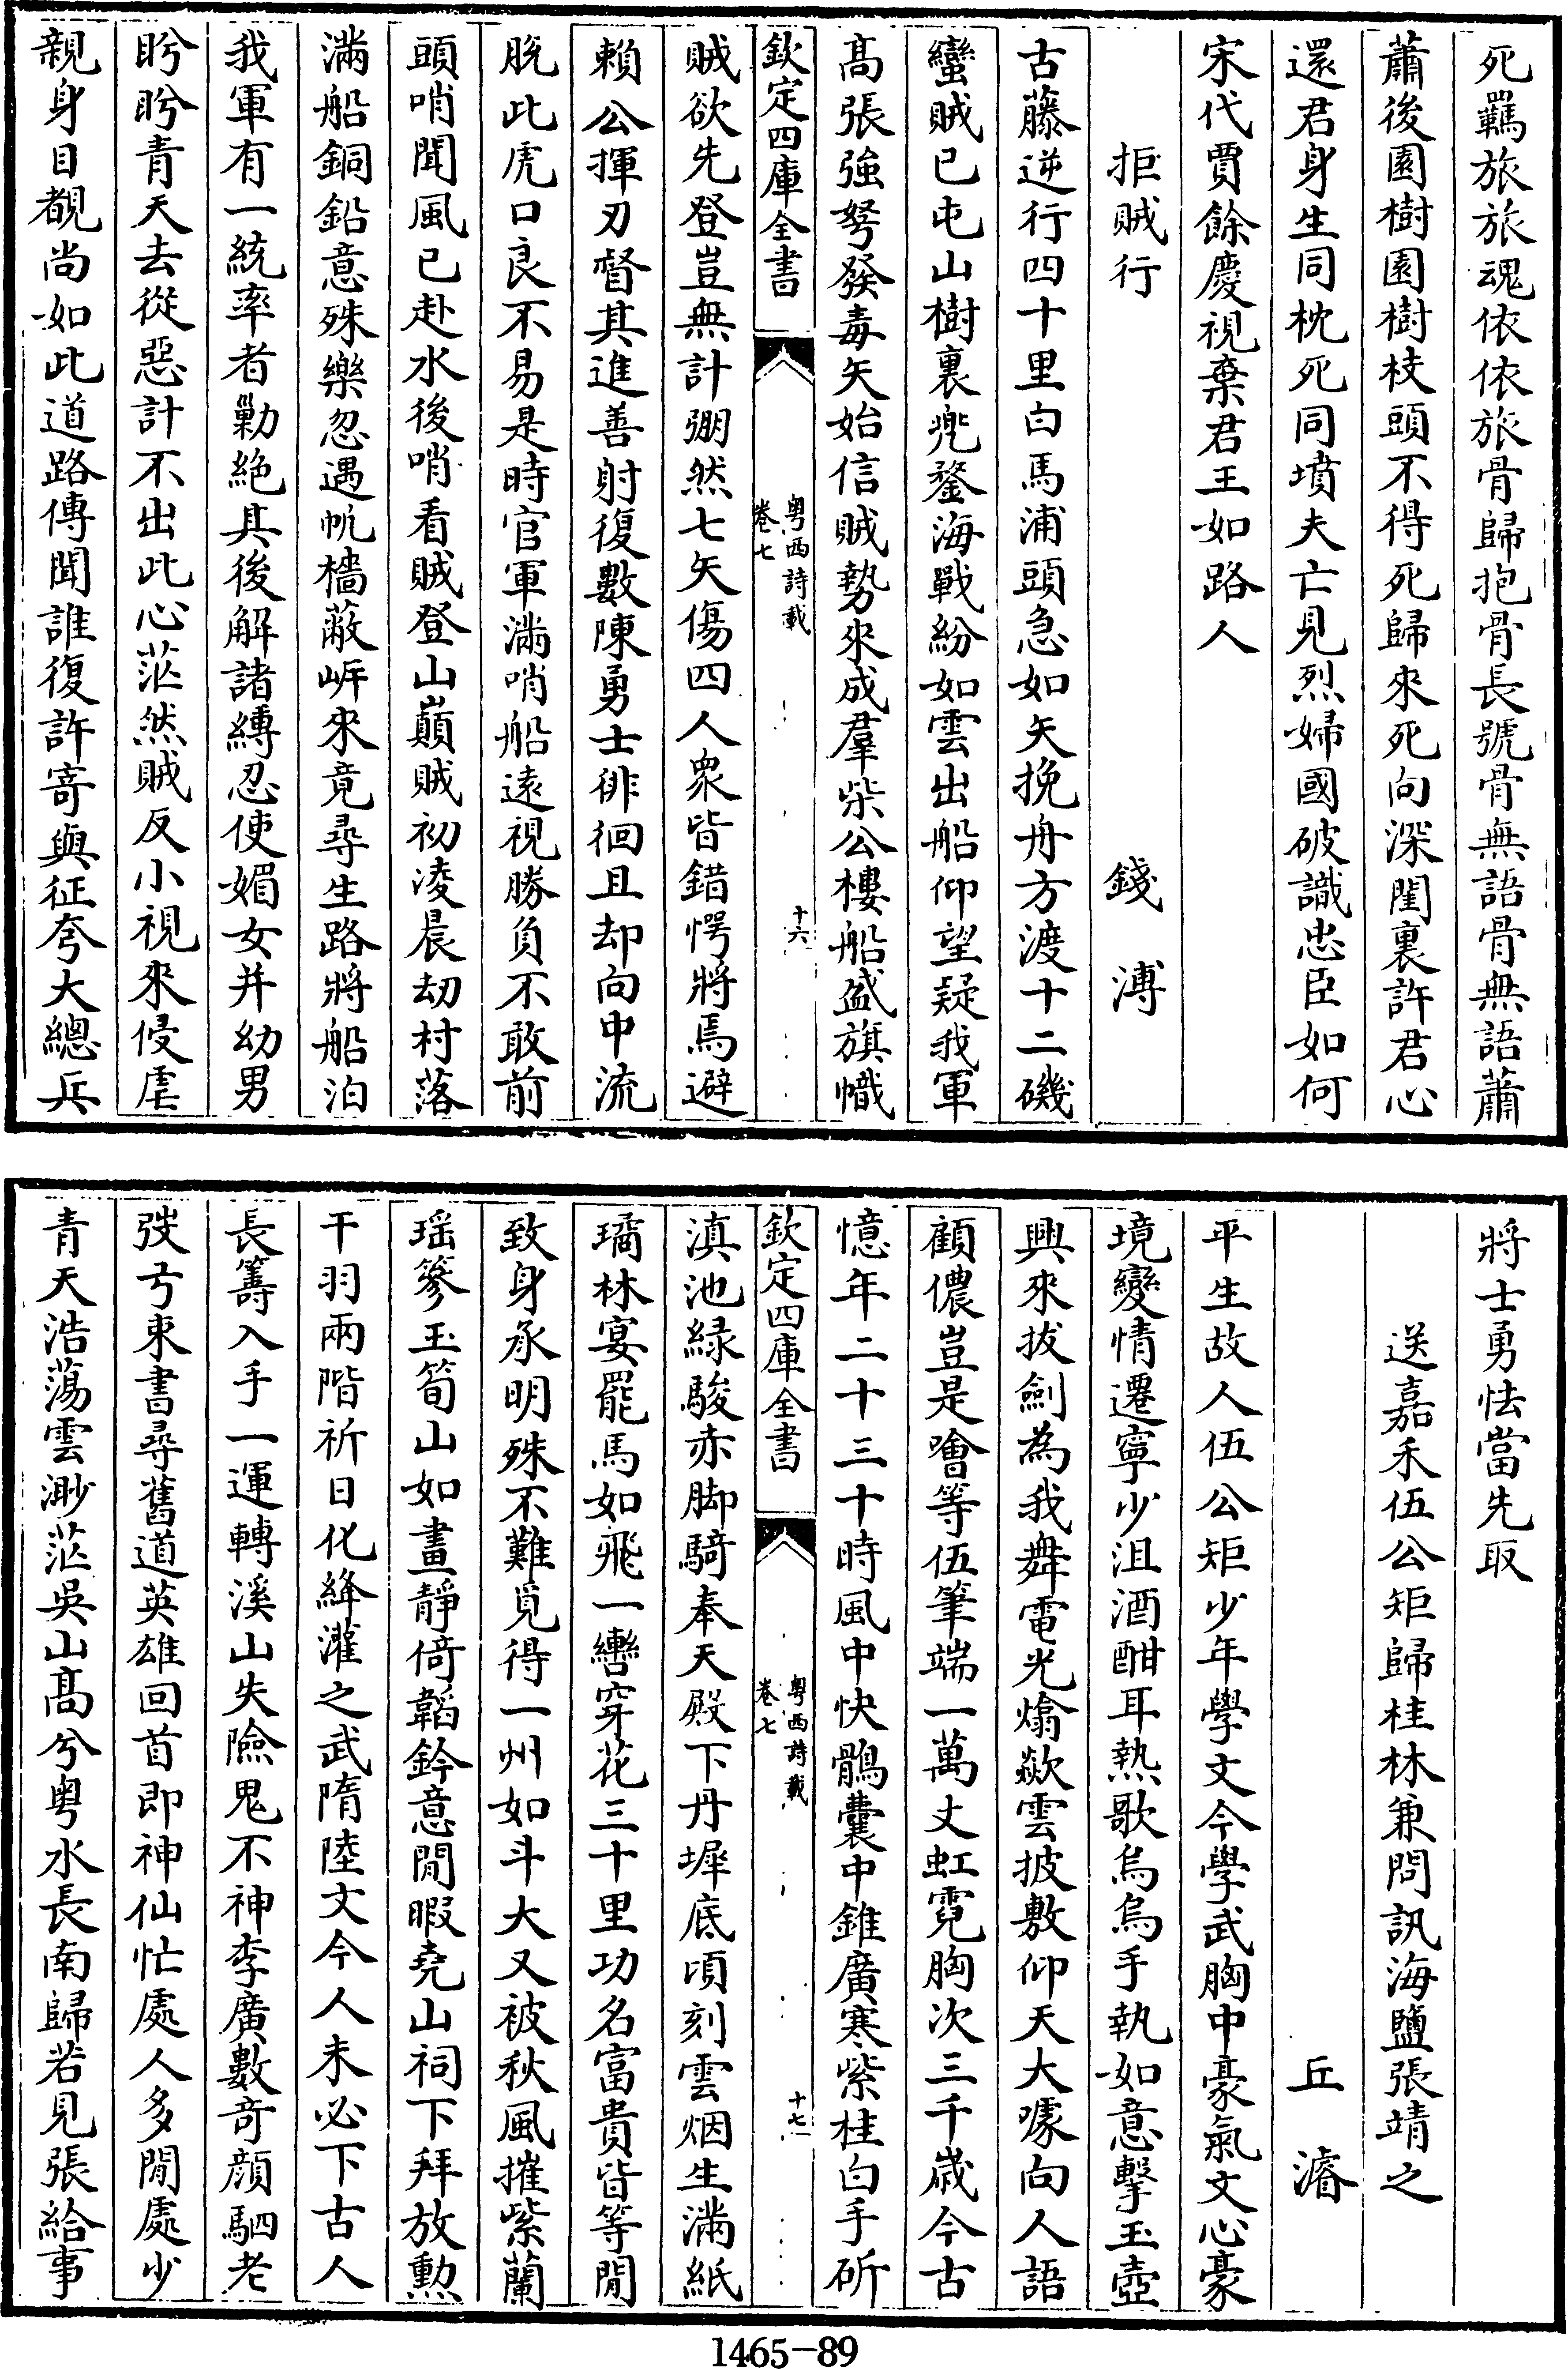 死羈旅旅魂依依旅骨歸抱骨長號骨無語骨無語蕭
蕭後園樹園樹枝頭不得死歸來死向深閨裏許君心
還君身生同枕死同墳夫亡見烈婦國破識忠臣如何
宋代賈餘慶視棄君王如路人
拒賊行
錢溥
古藤逆行四十里白馬浦頭急如矢挽舟方渡十二磯
蠻賊已屯山樹裏兜鍪海戰紛如雲出船仰望疑我軍
髙張強弩發毒矢始信賊勢來成羣柴公樓船盛旗幟
欽定四庫全書
粤西詩載
卷七
十六
賊欲先登豈無計弸然七矢傷四人衆皆錯愕將焉避
頼公揮刃督其進善射復數陳勇士徘徊且却向中流
脱此虎口良不易是時官軍滿哨船逺視勝負不敢前
頭哨聞風已赴水後哨看賊登山巔賊初凌晨刼村落
滿船銅鉛意殊樂忽遇帆檣蔽岍來竟尋生路將船泊
我軍有一統率者勦絶其後解諸縛忍使媚女并幼男
盻盻青天去從惡計不出此心茫然賊反小視來侵虐
親身目覩尚如此道路傳聞誰復許寄與征夸大總兵
將士勇怯當先取
送嘉禾伍公矩歸桂林兼問訊海鹽張靖之
丘濬
平生故人伍公矩少年學文今學武胸中豪氣文心豪
境變情遷寧少沮酒酣耳熱歌烏烏手執如意擊玉壺
興來拔劍為我舞電光爚歘雲披敷仰天大噱向人語
顧儂豈是噲等伍筆端一萬丈虹霓胸次三千歳今古
憶年二十三十時風中快鶻囊中錐廣寒紫桂白手斫
欽定四庫全書
粤西詩載
卷七
十七
滇池緑駿赤脚騎奉天殿下丹墀底頃刻雲烟生滿紙
璚林宴罷馬如飛一轡穿花三十里功名富貴皆等閒
致身承明殊不難覓得一州如斗大又被秋風摧紫蘭
瑶篸玉筍山如畫靜倚韜鈐意閒暇堯山祠下拜放勲
干羽兩階祈日化絳灌之武隋陸文今人未必下古人
長籌入手一運轉溪山失險鬼不神李廣數奇顔駟老
弢弓束書尋舊道英雄回首即神仙忙處人多閒處少
青天浩蕩雲渺茫吳山髙兮粤水長南歸若見張給事
1465-89